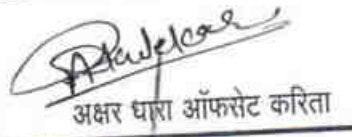 अक्षर धारा ऑफसेट करिता